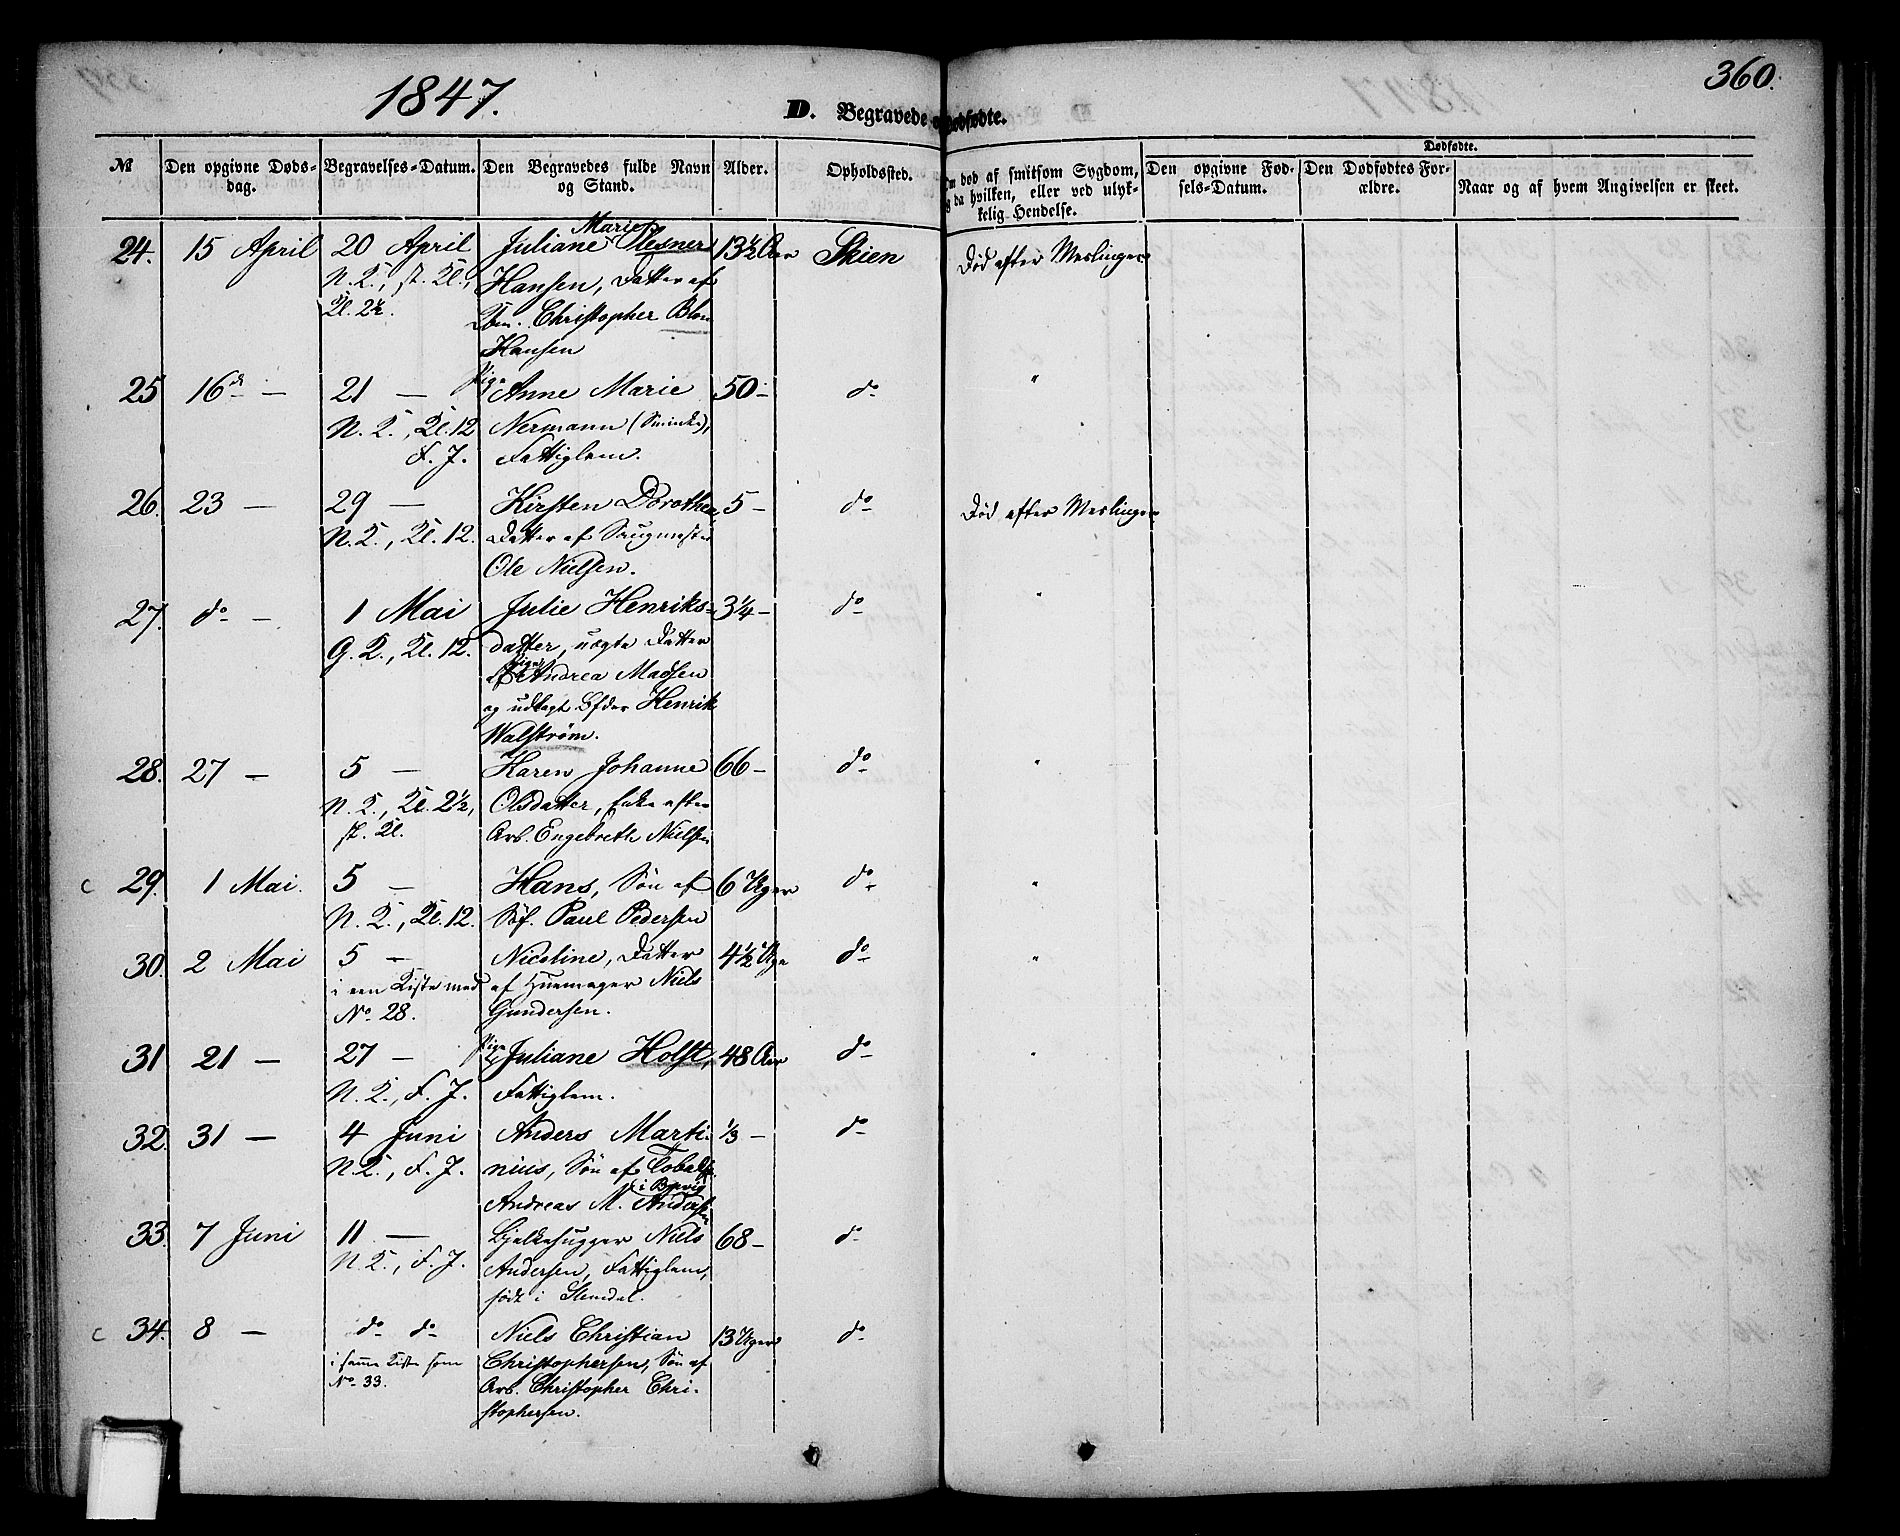 1847.
360.
D. Begravede og Dødfødte.
№
Den opgivne Døds-
dag.
Begravelses-Datum.
Den Begravedes fulde Navn
og Stand.
Alder.
Opholdssted.
Om død af smitsom Sygdom,
og da hvilken, eller ved ulyk-
kelig Hendelse.
Dødfødte.
Den opgivne Fød-
sels-Datum.
Den Dødfødtes For-
ældre.
Naar og af hvem Angivelsen er skeet.
24. 15 April 20 April Juliane Marie Plesner 13½ Aar Skien Død efter Meslinger
N. K., st. Kl., Hansen, Datter af
Kl. 2½. Christopher Blom
Hansen
25 16 d. — 21 — Pige Anne Marie 50 — do "
N. K., Kl. 12 Nermann
F. J. Fattiglem.
26. 23 — 29 — Kirsten Dorothea 5 — do Død efter Meslinger
N. K., Kl. 12. Datter af Saugmester
Ole Nielsen.
27. do — 1 Mai Julie Henriks- 3¼ — do "
G. K., Kl. 12. datter, uægte Datter
af Pige Andrea Madsen
og udlagt Bfder Henrik
Walstrøm.
28. 27 — 5 — Karen Johanne 66 — do "
N. K., Kl. 2½, Olsdatter, Enke efter
st. Kl. Arb. Engebreth Nielsen
c 29. 1 Mai. 5 — Hans, Søn af 6 Uger do "
N. K., Kl. 12. Søf. Paul Pedersen
30. 2 Mai 5 — Nicoline, Datter 4½ Uge do "
i een Kiste med af Huemager Niels
No 28. Gundersen.
31 21 — 27 — Pige Juliane Holst, 48 Aar do "
N. K., F. J. Fattiglem.
32. 31 — 4 Juni Anders Marti- ⅓ — do
N. K., F. J. nius, Søn af
Andreas M. Andersen
33. 7 Juni 11 — Bjelkehugger Niels 68 — do
N. K., F. J. Andersen, Fattiglem,
født i Slemdal.
c 34. 8 — do do Niels Christian 13 Uger do
i samme Kiste som Christophersen, Søn af
No 33. Arb. Christopher Chri-
stophersen.